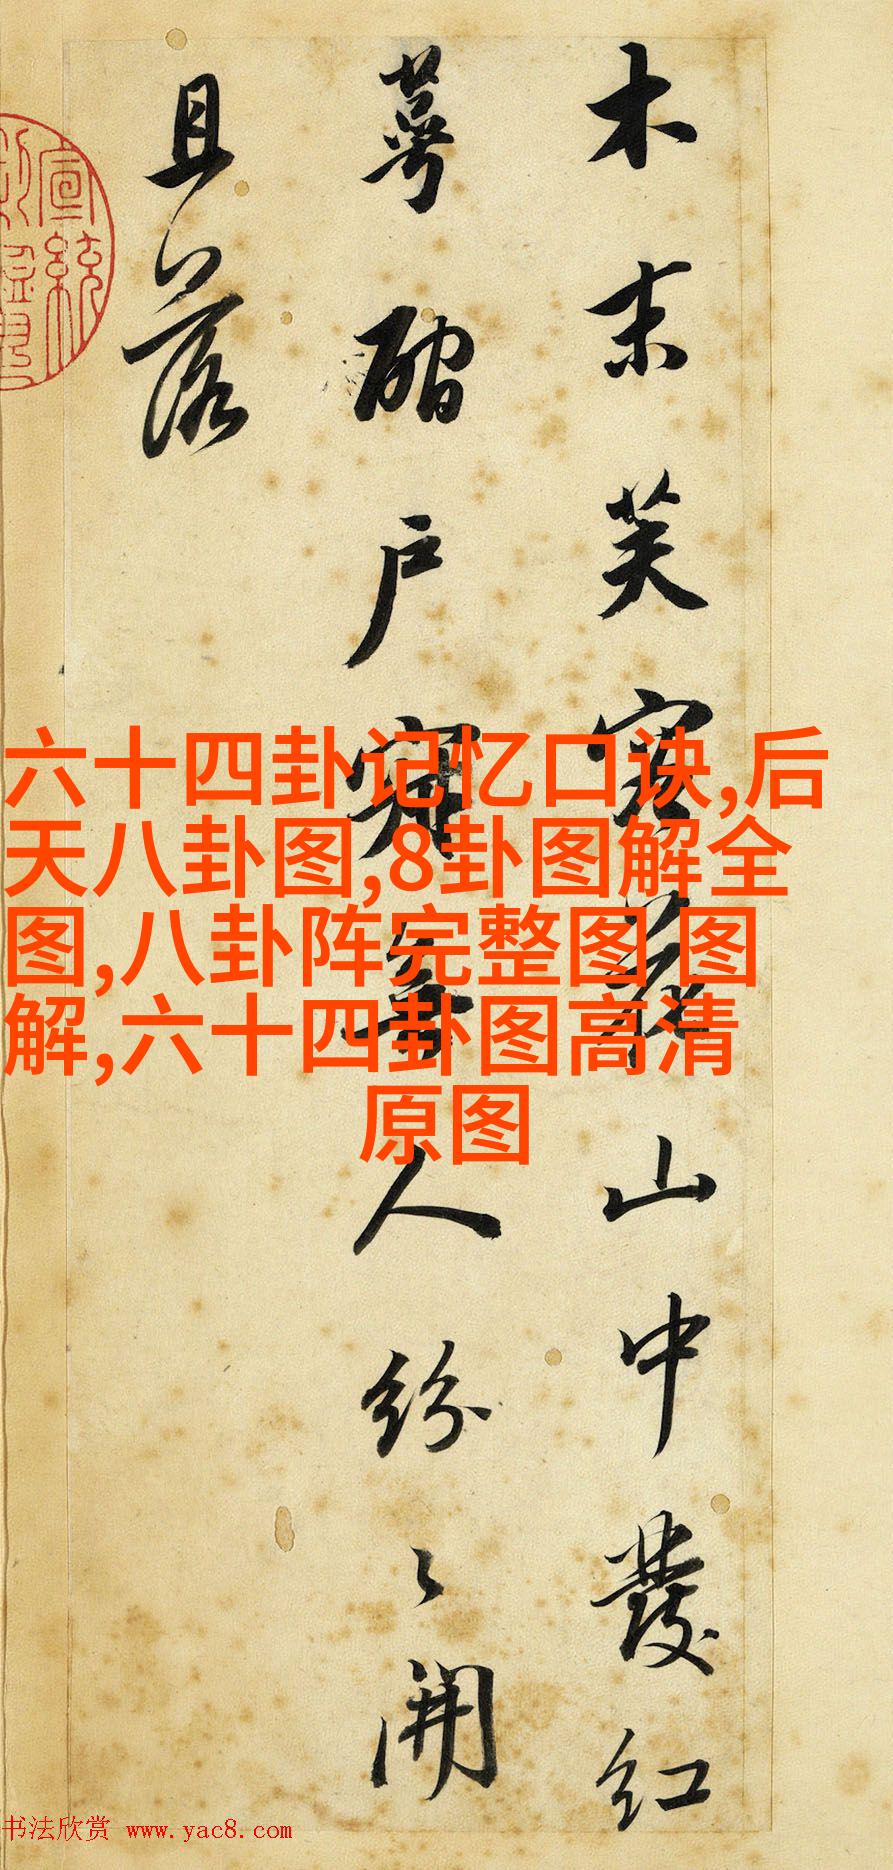 木末芙容花山中發紅
萼磵户寂無人紛々開
且落
宣統
六十四卦记忆口诀,后
天八卦图,8卦图解全
图,八卦阵完整图 图
解,六十四卦图高清
原图
书法欣赏 www.yac8.com